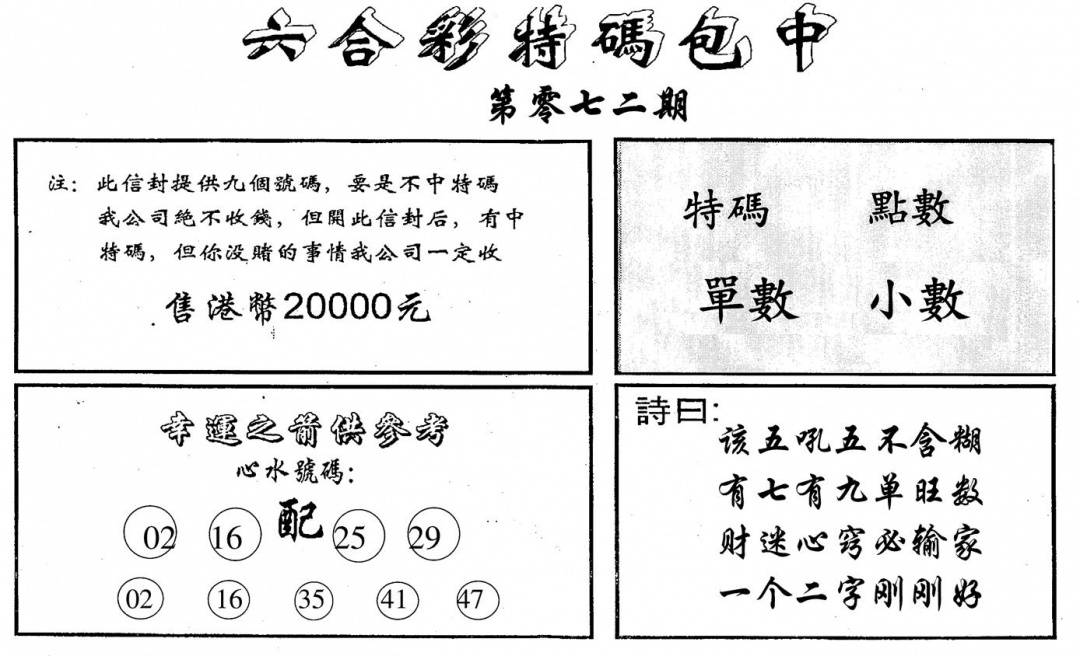 六合彩特碼包中
第零七二期
注：此信封提供九個號碼，要是不中特碼
我公司絶不收錢，但開此信封后，有中
特碼，但你没賭的事情我公司一定收
售港幣20000元
特碼 點數
單數 小數
幸運之箭供參考
心水號碼：
配
02 16 25 29
02 16 35 41 47
詩曰：
该五吼五不含糊
有七有九单旺数
财迷心窍必输家
一个二字刚刚好